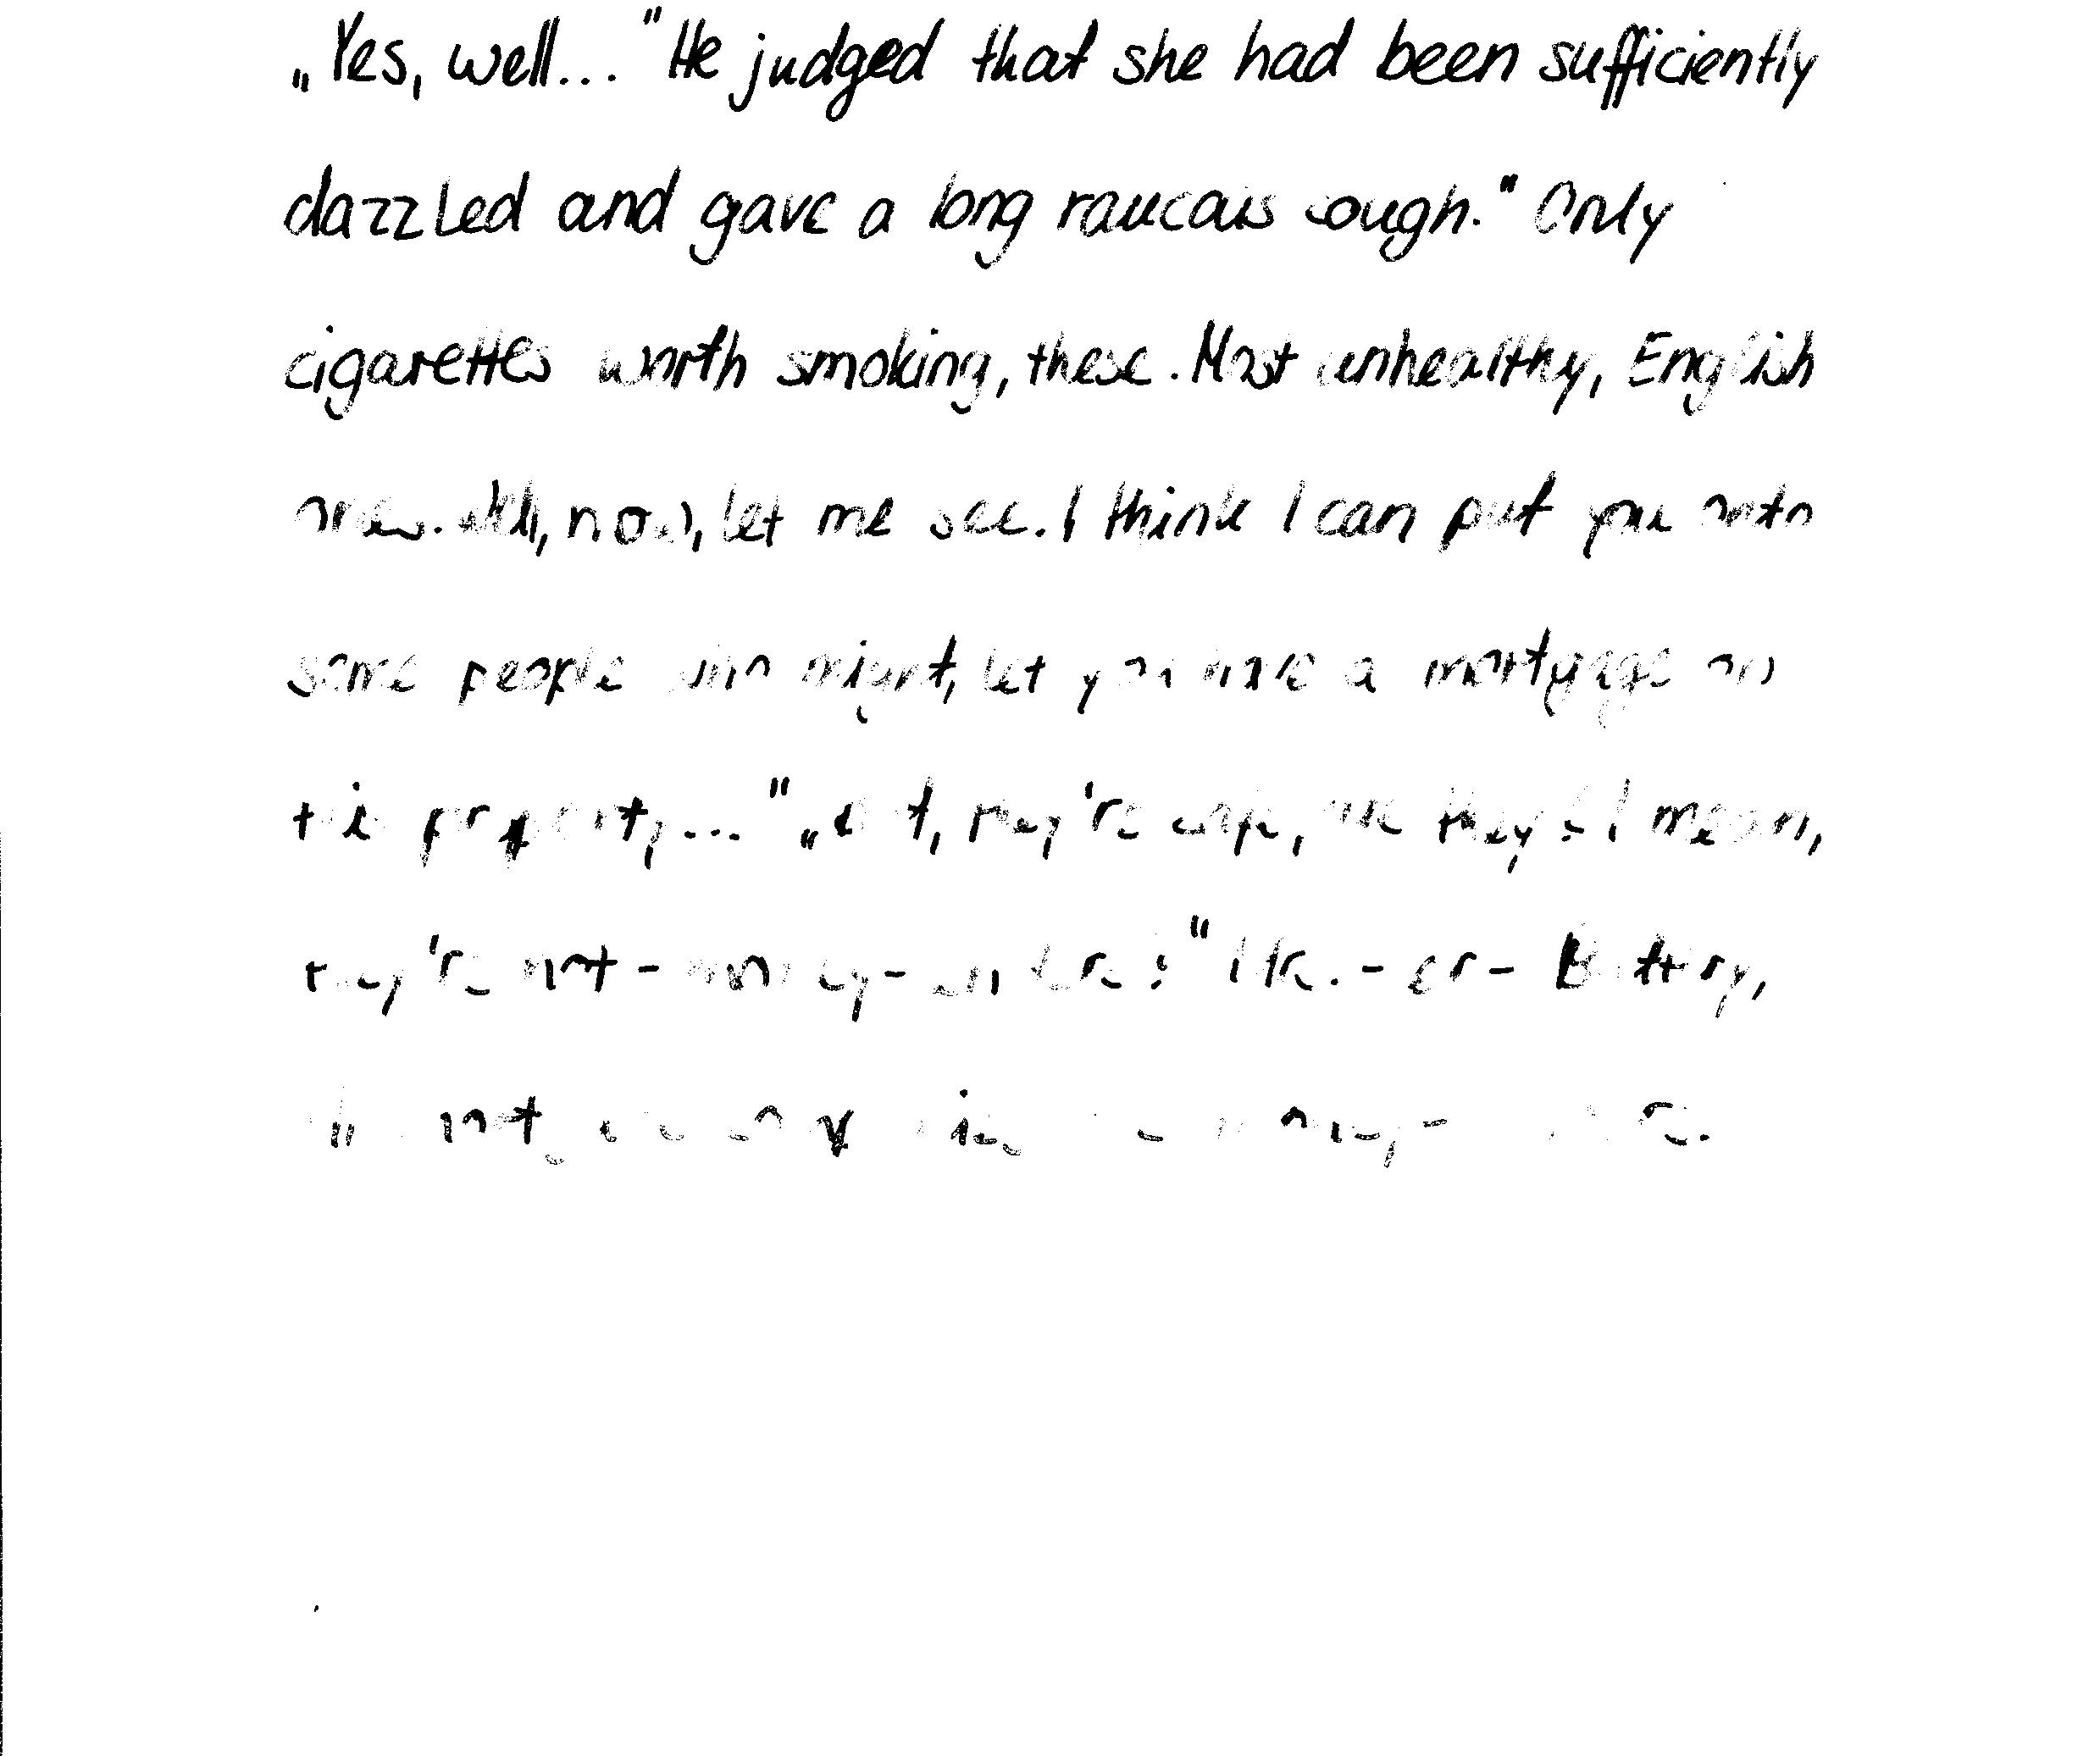 „Yes, well..." He judged that she had been sufficiently
dazzled and gave a long raucous cough." Only
cigarettes worth smoking, these. Most unhealthy, English
ones. Well, now, let me see. I think I can put you onto
some people who might, let you have a mortgage on
the property..." „But, they're safe, are they? I mean,
they're not - money-lenders?" Mr. - er - Buttery,
not